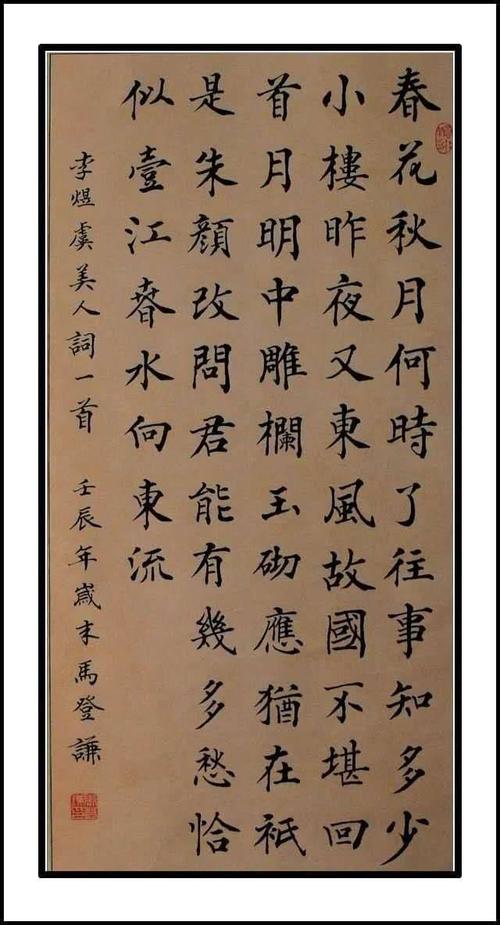 春花秋月何時了往事知多少
小樓昨夜又東風故國不堪回
首月明中雕欄玉砌應猶在袛
是朱顏改問君能有幾多愁恰
似壹江春水向東流
李煜虞美人詞一首 壬辰年歲末馬登謙